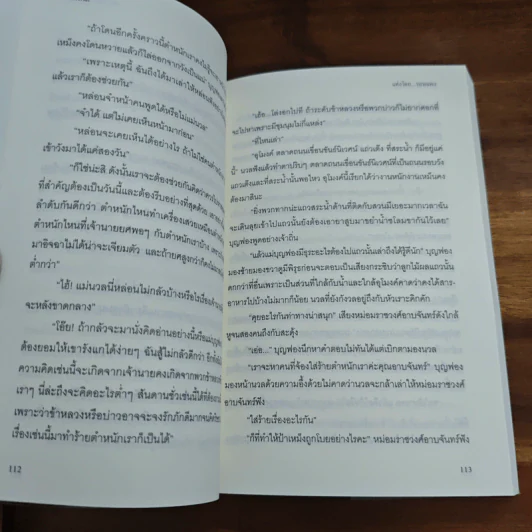 "ถ้าโดนอีกครั้งคราวนี้ตำหนักเราคงไม่
เหมือนคงโดนหวายแล้วก็ไล่ออกจากวังเป็นแน่"
"เพราะเหตุนี้ ฉันถึงได้มาเล่าให้หล่อนฟัง
แล้วเราก็ต้องช่วยกัน"
"หล่อนจำหน้าคนพูดได้หรือไม่แม่นวล"
"จำได้ แต่ไม่เคยเห็นหน้ามาก่อน"
"หล่อนจะเคยเห็นได้อย่างไร ถ้าไม่ใช่คน
เข้าวังมาได้แค่สองวัน"
"ก็ใช่น่ะสิ ดังนั้นเราจะต้องช่วยกันคิดว่า
ที่สำคัญต้องเป็นวันนี้และต้องรีบอย่างที่สุดด้วย
ลำดับกันดีกว่า ตำหนักไหนทำเครื่องเสวย
ตำหนักไหนที่เจ้านายยศพอๆ กับตำหนักเรา
มาอิจฉาไม่ได้น่าจะเจียมตัว และถ้ายศสูงกว่า
ต่ำกว่า"
"ไฮ้! แม่นวลนี่หล่อนไม่กลัวบ้างหรือไร
จะหลังขาดกลาง"
"โอ๊ย! ถ้ากลัวจะมานั่งคิดอ่านอย่างนี้หรือ
ต้องยอมให้เขารังแกได้ง่ายๆ ฉันสู้ไม่กลัวดีกว่า
ความคิดเช่นนี้จะเกิดจากเจ้านายคงเกิดจากพวก
เราๆ นี่ล่ะถึงจะคิดอะไรต่ำๆ สันดานชั่วเช่นนี้ได้
เพราะว่าข้าหลวงหรือบ่าวอาจจะจงรักภักดีมากจน
เรื่องเช่นนี้มาทำร้ายตำหนักเราก็เป็นได้"
112
"เอ้อ...โล่งอกไปที ถ้าระดับข้าหลวงหรือพวกบ่าวก็ไม่ยากดอกที่
จะไปหาเพราะมีชุมนุมไม่กี่แหล่ง"
"ที่ไหนเล่า"
"อุโมงค์ ตลาดถนนเขื่อนขันธ์นิเวศน์ แถวเต๊ง ที่สระน้ำ ก็มีอยู่แค่
นี้" นวลฟังแล้วทำตาปริบๆ ตลาดถนนเขื่อนขันธ์นิเวศน์ที่เป็นถนนรอบวัง
แถวเต๊งและที่ตรงสระน้ำนั้นพอไหว อุโมงค์นี้เรียกได้ว่างานหนักงานเหม็นคง
ต้องมาสินะ
"อีพวกทาสน่ะแถวสระน้ำด้านที่ติดกับสวนมีเยอะมากเวลาฉัน
จะเดินลุยเข้าไปแถวนั้นยังต้องเอายาสูบมาขยำน้ำชโลมขากันไว้เลย"
บุญฟองพูดอย่างเจ้าถิ่น
"แล้วแม่บุญฟองมีธุระอะไรต้องไปแถวนั้นเล่าถึงได้รู้ดีนัก" บุญฟอง
มองซ้ายมองขวาดูมีพิรุธก่อนจะตอบเป็นเสียงกระซิบว่าลูกไม้ผลแถวนั้น
ดกกว่าที่อื่นเพราะเป็นส่วนที่ใกล้กับน้ำและใกล้อุโมงค์คาดว่าคงได้สาร-
อาหารไปบ้างไม่มากก็น้อย นวลที่ยังกังวลอยู่ถึงกับหัวเราะคิกคัก
"คุยอะไรกันท่าทางน่าสนุก" เสียงหม่อมราชวงศ์อาบจันทร์ดังใกล้
หูจนสองคนถึงกับสะดุ้ง
"เอ่อ..." บุญฟองนึกหาคำตอบไม่ทันได้แต่เบิกตามองนวล
"เราจะหาคนที่จ้องใส่ร้ายตำหนักเราค่ะคุณอาบจันทร์" บุญฟอง
มองหน้านวลด้วยความอึ้งด้วยไม่คาดว่านวลจะกล้าเล่าให้หม่อมราชวงศ์
อาบจันทร์ฟัง
"ใส่ร้ายเรื่องอะไรกัน"
"ก็ที่ทำให้ป้าเหมือนถูกโบยอย่างไรคะ" หม่อมราชวงศ์อาบจันทร์ฟัง
113